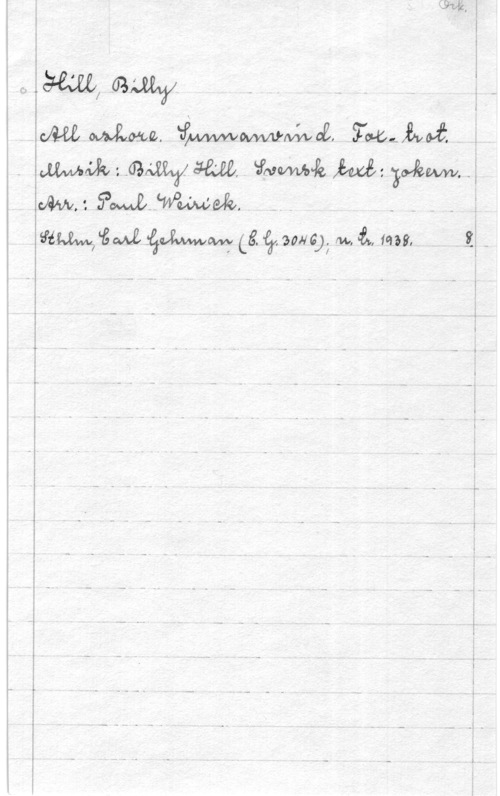 Ork.
Hill, Billy
All ashore. Sunnanvind. Fox-trot.
Musik: Billy Hill. Svensk text: Jokern.
Arr.: Paul Weirick.
Sthlm, Carl Gehrman (C.G. 3046); u. år. 1938. 8